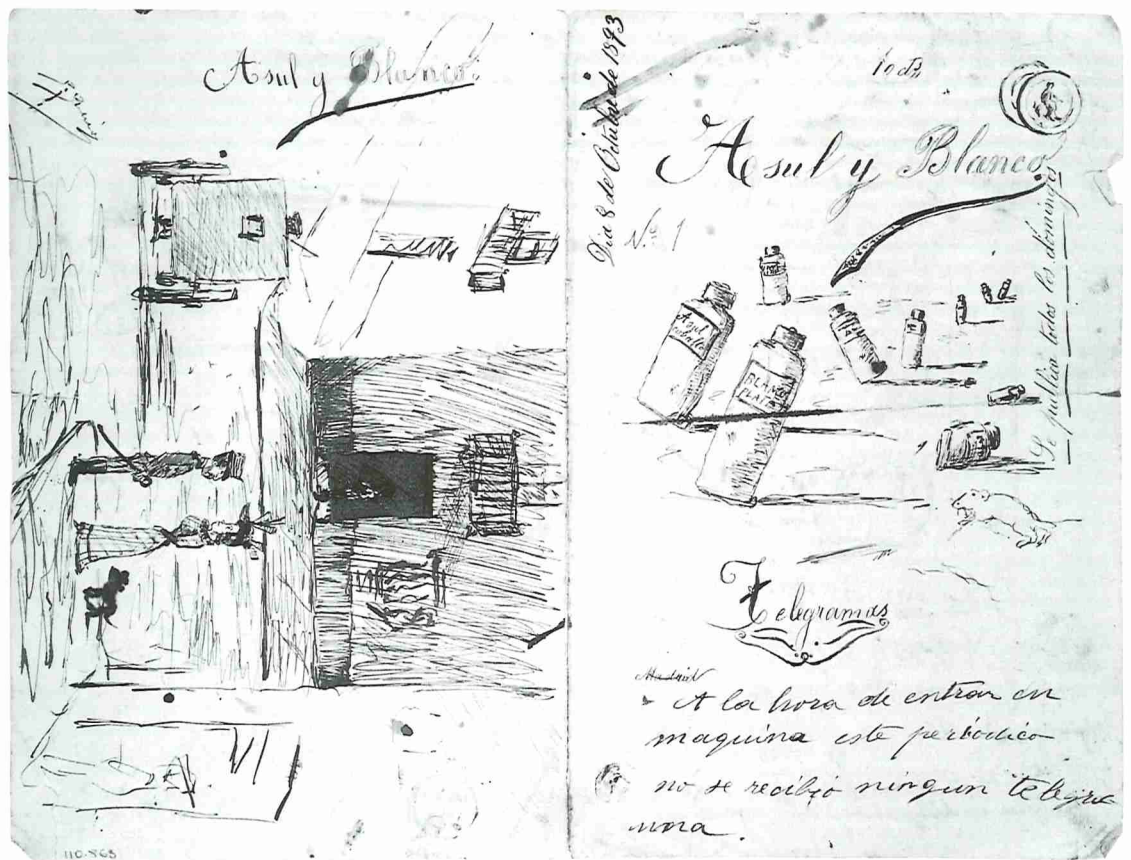 Asul y Blanco
Dia 8 de Octubre de 1893
Asul y Blanco
No. 1
Se publica todos los domingos
Asul
BLANCO
PLATA
Telegramas
Madrid
A la hora de entrar en
maquina este periódico
no se recibió ningun telegra
ma.
110.863